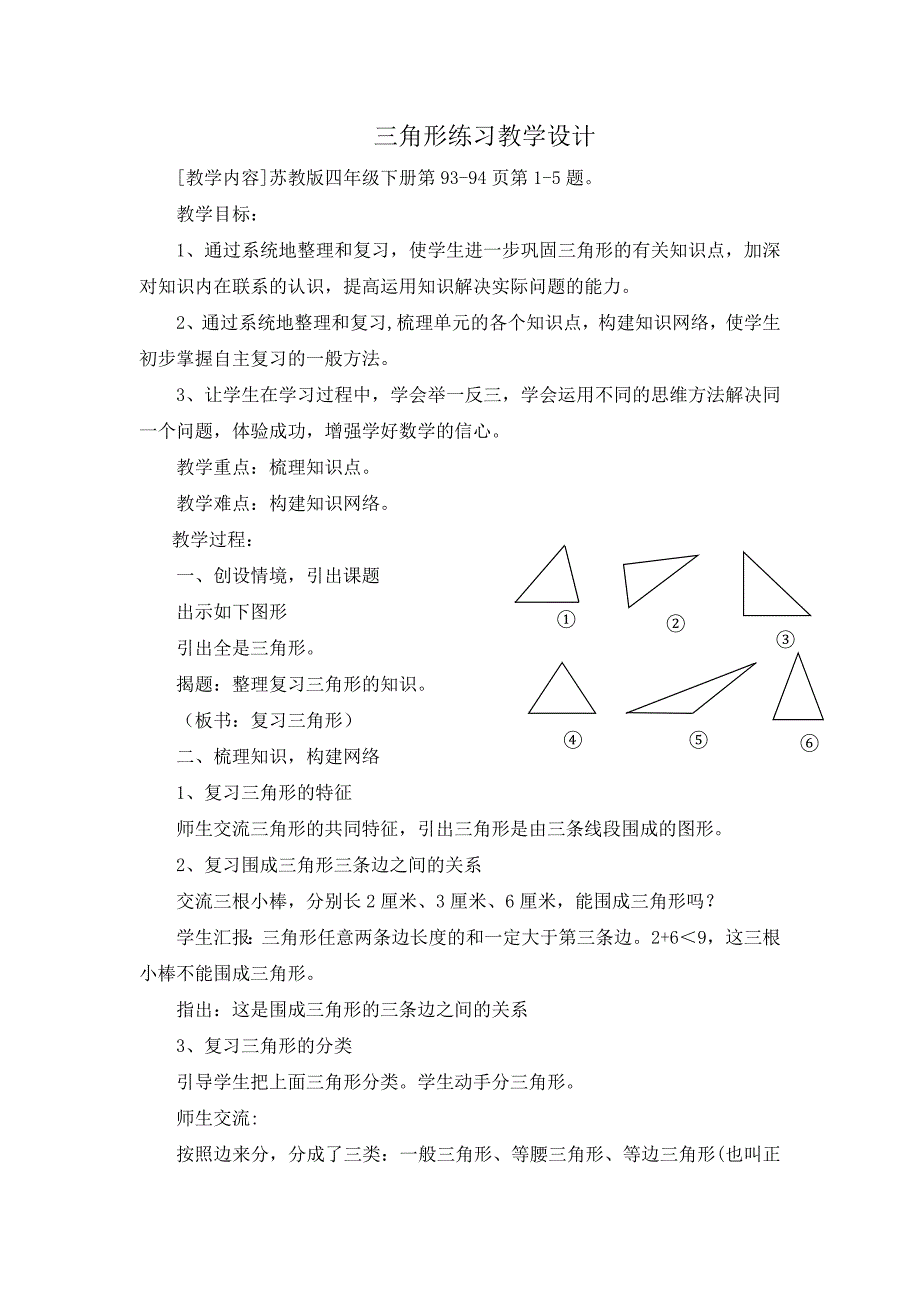 三角形练习教学设计
[教学内容]苏教版四年级下册第93-94页第1-5题。
教学目标：
1、通过系统地整理和复习，使学生进一步巩固三角形的有关知识点，加深
对知识内在联系的认识，提高运用知识解决实际问题的能力。
2、通过系统地整理和复习,梳理单元的各个知识点，构建知识网络，使学生
初步掌握自主复习的一般方法。
3、让学生在学习过程中，学会举一反三，学会运用不同的思维方法解决同
一个问题，体验成功，增强学好数学的信心。
教学重点：梳理知识点。
教学难点：构建知识网络。
教学过程：
一、创设情境，引出课题
出示如下图形
①
②
③
引出全是三角形。
揭题：整理复习三角形的知识。
（板书：复习三角形）
④
⑤
⑥
二、梳理知识，构建网络
1、复习三角形的特征
师生交流三角形的共同特征，引出三角形是由三条线段围成的图形。
2、复习围成三角形三条边之间的关系
交流三根小棒，分别长2厘米、3厘米、6厘米，能围成三角形吗？
学生汇报：三角形任意两条边长度的和一定大于第三条边。2+6＜9，这三根
小棒不能围成三角形。
指出：这是围成三角形的三条边之间的关系
3、复习三角形的分类
引导学生把上面三角形分类。学生动手分三角形。
师生交流:
按照边来分，分成了三类：一般三角形、等腰三角形、等边三角形(也叫正